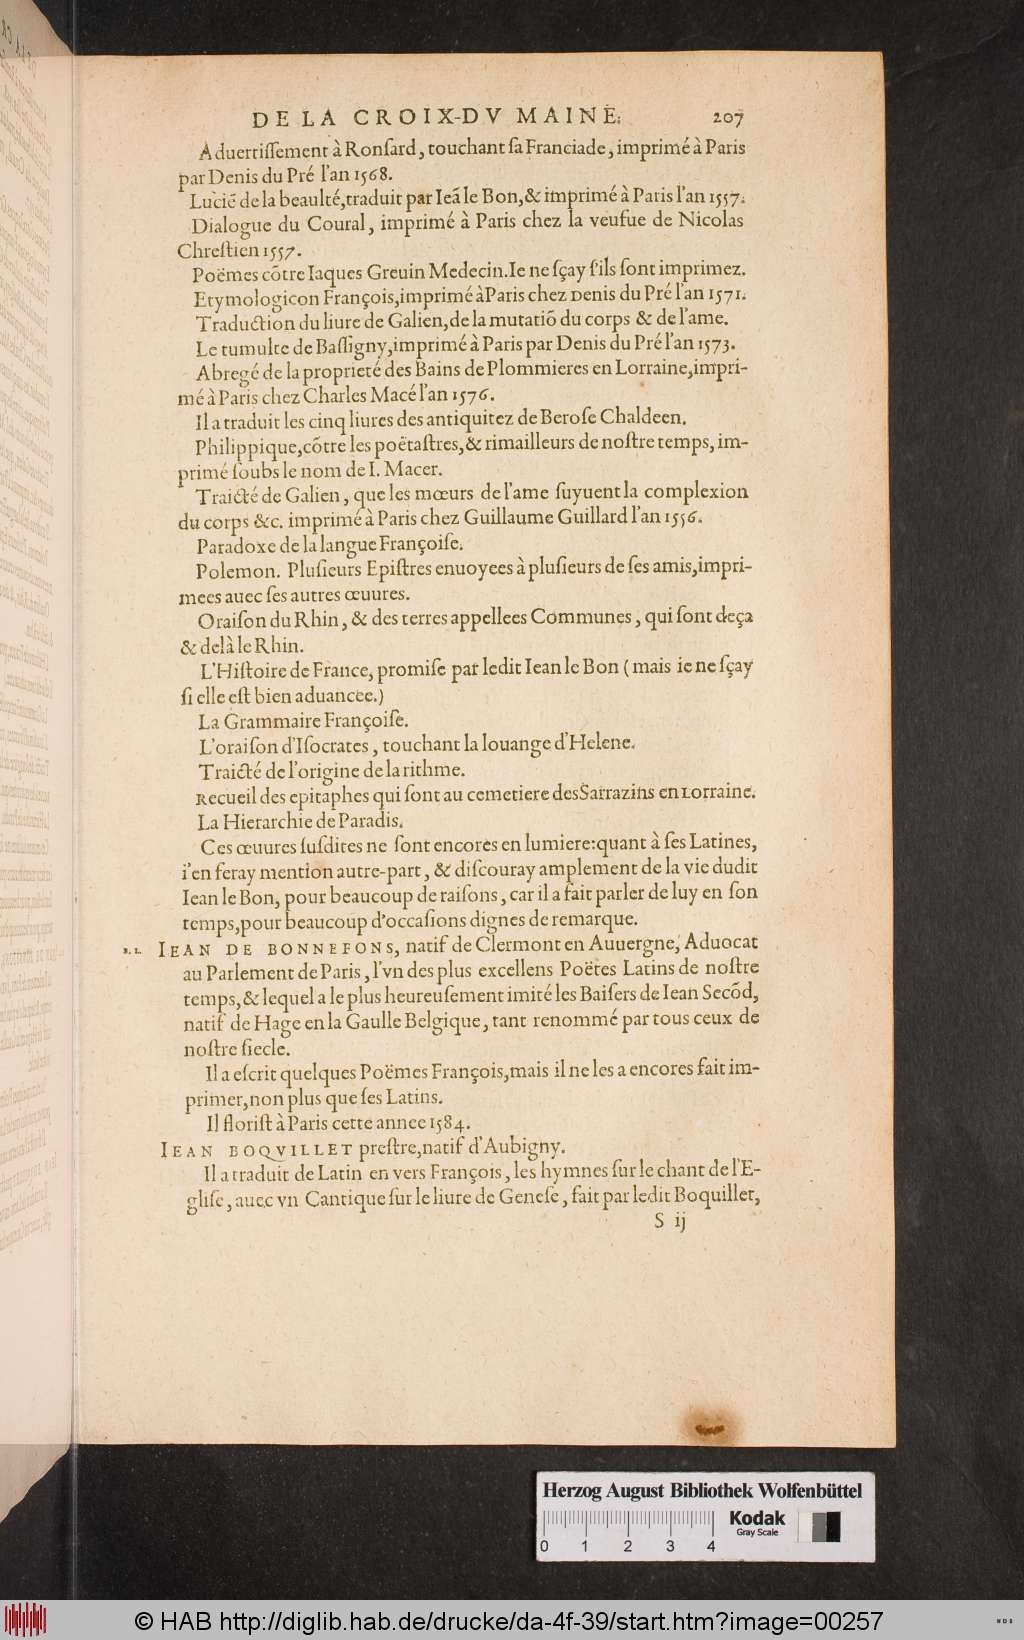 DE LA CROIX-DV MAINE. 207
Aduertiſſement à Ronſard, touchant ſa Franciade, imprimé à Paris
par Denis du Pré l'an 1568.
Luciẽ de la beaulté, traduit par Ieã le Bon, & imprimé à Paris l'an 1557.
Dialogue du Coural, imprimé à Paris chez la veufue de Nicolas
Chreſtien 1557.
Poëmes cõtre Iaques Greuin Medecin. Ie ne ſçay ſ'ils ſont imprimez.
Etymologicon François, imprimé à Paris chez Denis du Pré l'an 1571.
Traduction du liure de Galien, de la mutatiõ du corps & de l'ame.
Le tumulte de Baſſigny, imprimé à Paris par Denis du Pré l'an 1573.
Abregé de la proprieté des Bains de Plommieres en Lorraine, impri-
mé à Paris chez Charles Macé l'an 1576.
Il a traduit les cinq liures des antiquitez de Beroſe Chaldeen.
Philippique, cõtre les poëtaſtres, & rimailleurs de noſtre temps, im-
primé ſoubs le nom de I. Macer.
Traicté de Galien, que les mœurs de l'ame ſuyuent la complexion
du corps &c. imprimé à Paris chez Guillaume Guillard l'an 1556.
Paradoxe de la langue Françoiſe.
Polemon. Pluſieurs Epiſtres enuoyees à pluſieurs de ſes amis, impri-
mees auec ſes autres œuures.
Oraiſon du Rhin, & des terres appellees Communes, qui ſont deça
& delà le Rhin.
L'Hiſtoire de France, promiſe par ledit Iean le Bon (mais ie ne ſçay
ſi elle eſt bien aduancee.)
La Grammaire Françoiſe.
L'oraiſon d'Iſocrates, touchant la louange d'Helene.
Traicté de l'origine de la rithme.
Recueil des epitaphes qui ſont au cemetiere des Sarrazins en Lorraine.
La Hierarchie de Paradis.
Ces œuures ſuſdites ne ſont encores en lumiere: quant à ſes Latines,
i'en feray mention autre-part, & diſcouray amplement de la vie dudit
Iean le Bon, pour beaucoup de raiſons, car il a fait parler de luy en ſon
temps, pour beaucoup d'occaſions dignes de remarque.
B. L. IEAN DE BONNEFONS, natif de Clermont en Auuergne, Aduocat
au Parlement de Paris, l'vn des plus excellens Poëtes Latins de noſtre
temps, & lequel a le plus heureuſement imité les Baiſers de Iean Secõd,
natif de Hage en la Gaulle Belgique, tant renommé par tous ceux de
noſtre ſiecle.
Il a eſcrit quelques Poëmes François, mais il ne les a encores fait im-
primer, non plus que ſes Latins.
Il floriſt à Paris cette annee 1584.
IEAN BOQVILLET preſtre, natif d'Aubigny.
Il a traduit de Latin en vers François, les hymnes ſur le chant de l'E-
gliſe, auec vn Cantique ſur le liure de Geneſe, fait par ledit Boquillet,
S ij
Herzog August Bibliothek Wolfenbüttel
Kodak
Gray Scale
0 1 2 3 4
© HAB http://diglib.hab.de/drucke/da-4f-39/start.htm?image=00257